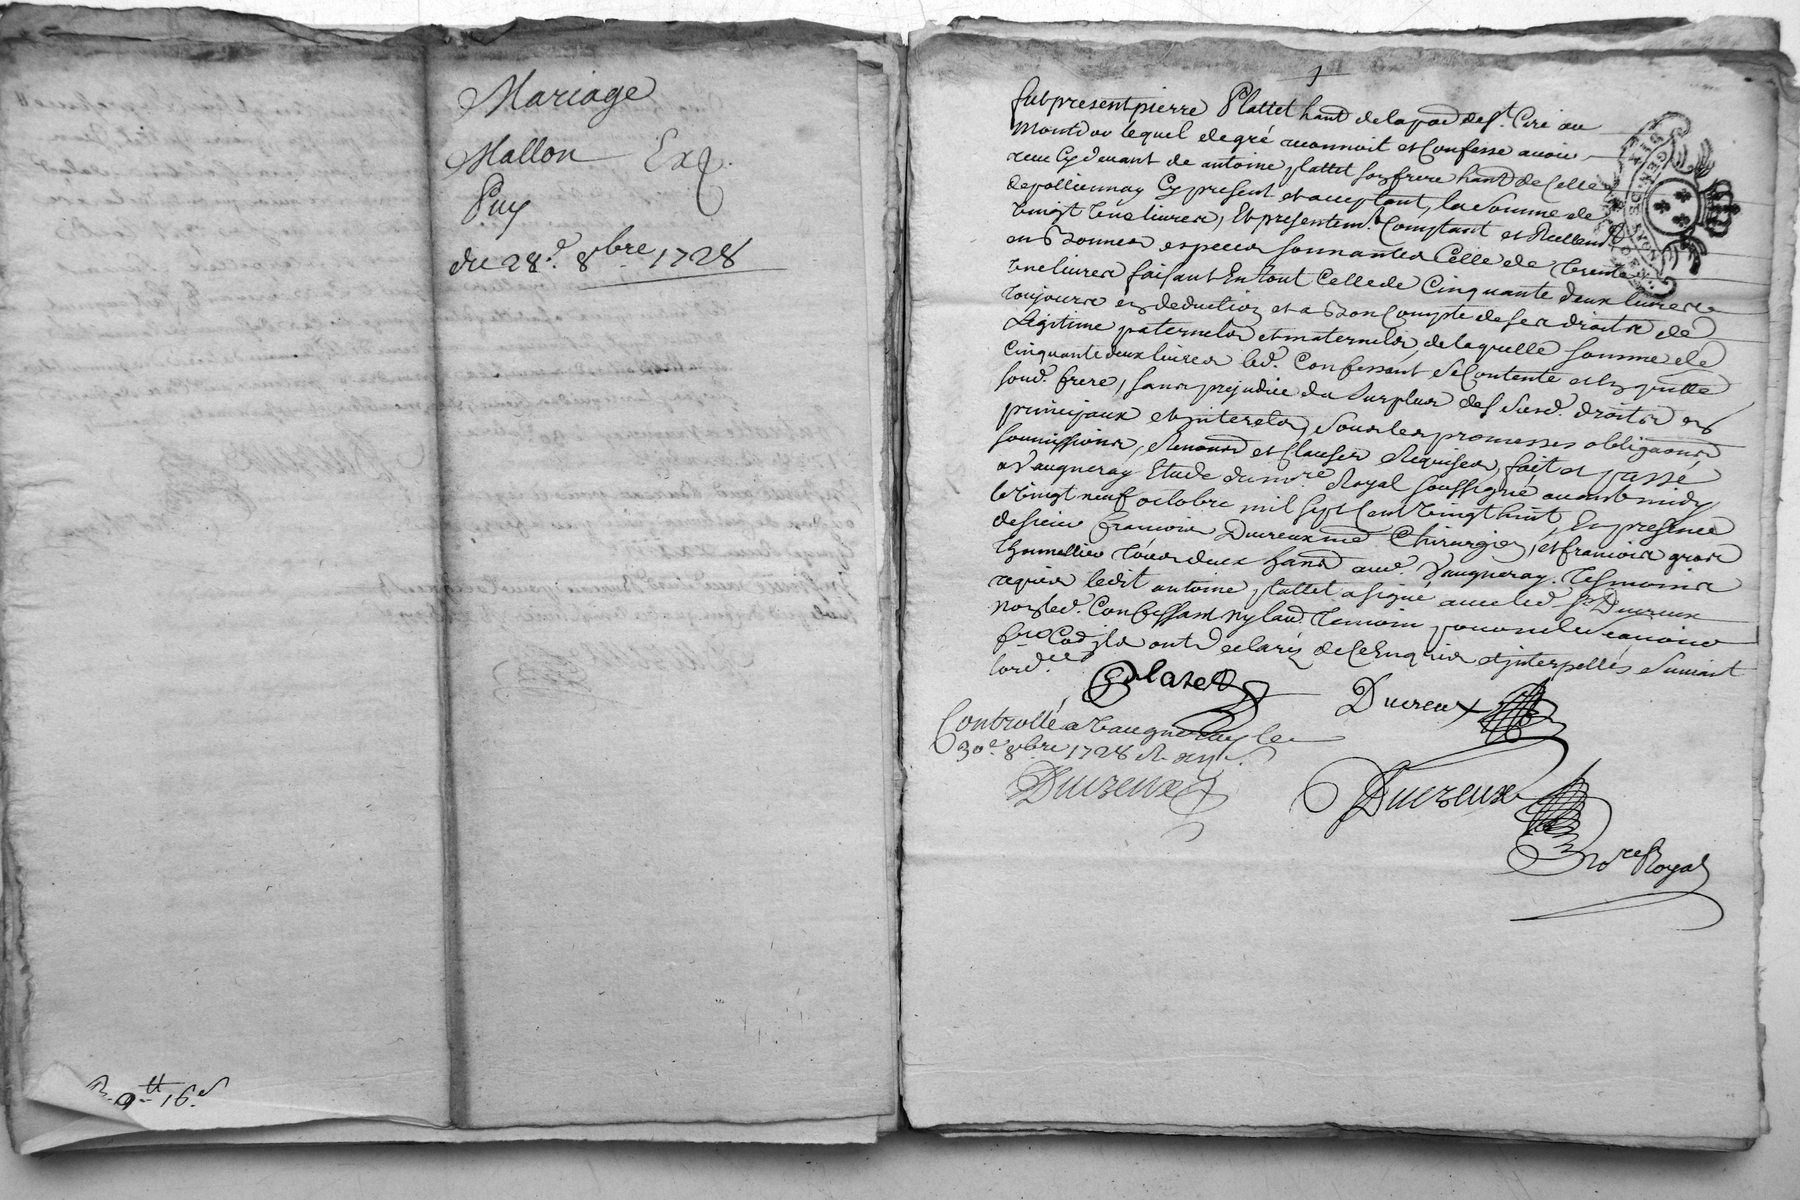 Mariage
Mallon Exp.
Puy
du 28e. 8bre 1728
R 9tt 16s
1
fut present pierre Plattet hant de la poe de St. Ciré au
Montdor lequel de gré reconnoit et Confesse avoir
receu Cy devant de antoine plattet son frere hant de Celle
de pollionnay Cy present et acceptant, la somme de
vingt une livres, Et presentemt. Comptant et Reellemt
en Bonnes especes sonnantes Celle de trente
une livres faisant En tout Celle de Cinquante deux livres
toujours en deduction et a Bon Compte de ses droits de
Legitime paternelle et maternelle, de laquelle somme de
Cinquante deux livres led. Confessant se Contente et en quitte
sond. frere, sans prejudice du surplus des susd. droits en
principaux et interets, sous les promesses obligaons
soumissions, Renons et Clauses Requises, fait et passé
a Vaugneray Etude du nore Royal soussigné avant midy
le vingt neuf octobre mil sept Cent vingt huit, En presence
de sieur francois Ducreux me Chirurgien, et francois gros
tous deux hans aud. Vaugneray. tesmoins
requis ledit antoine plattet a signé avec led. sr. Ducreux
non led. Confessant ny laud. temoin pour ne le scavoir
ont declaré de Ce Enquis et interpellés suivant
lord.ce
Platet
Ducreux
Controllé a Vaugneray le
30e. 8bre 1728 R. xijs.
Ducreux
Ducreux
nore Royal
GEN. DE LYON